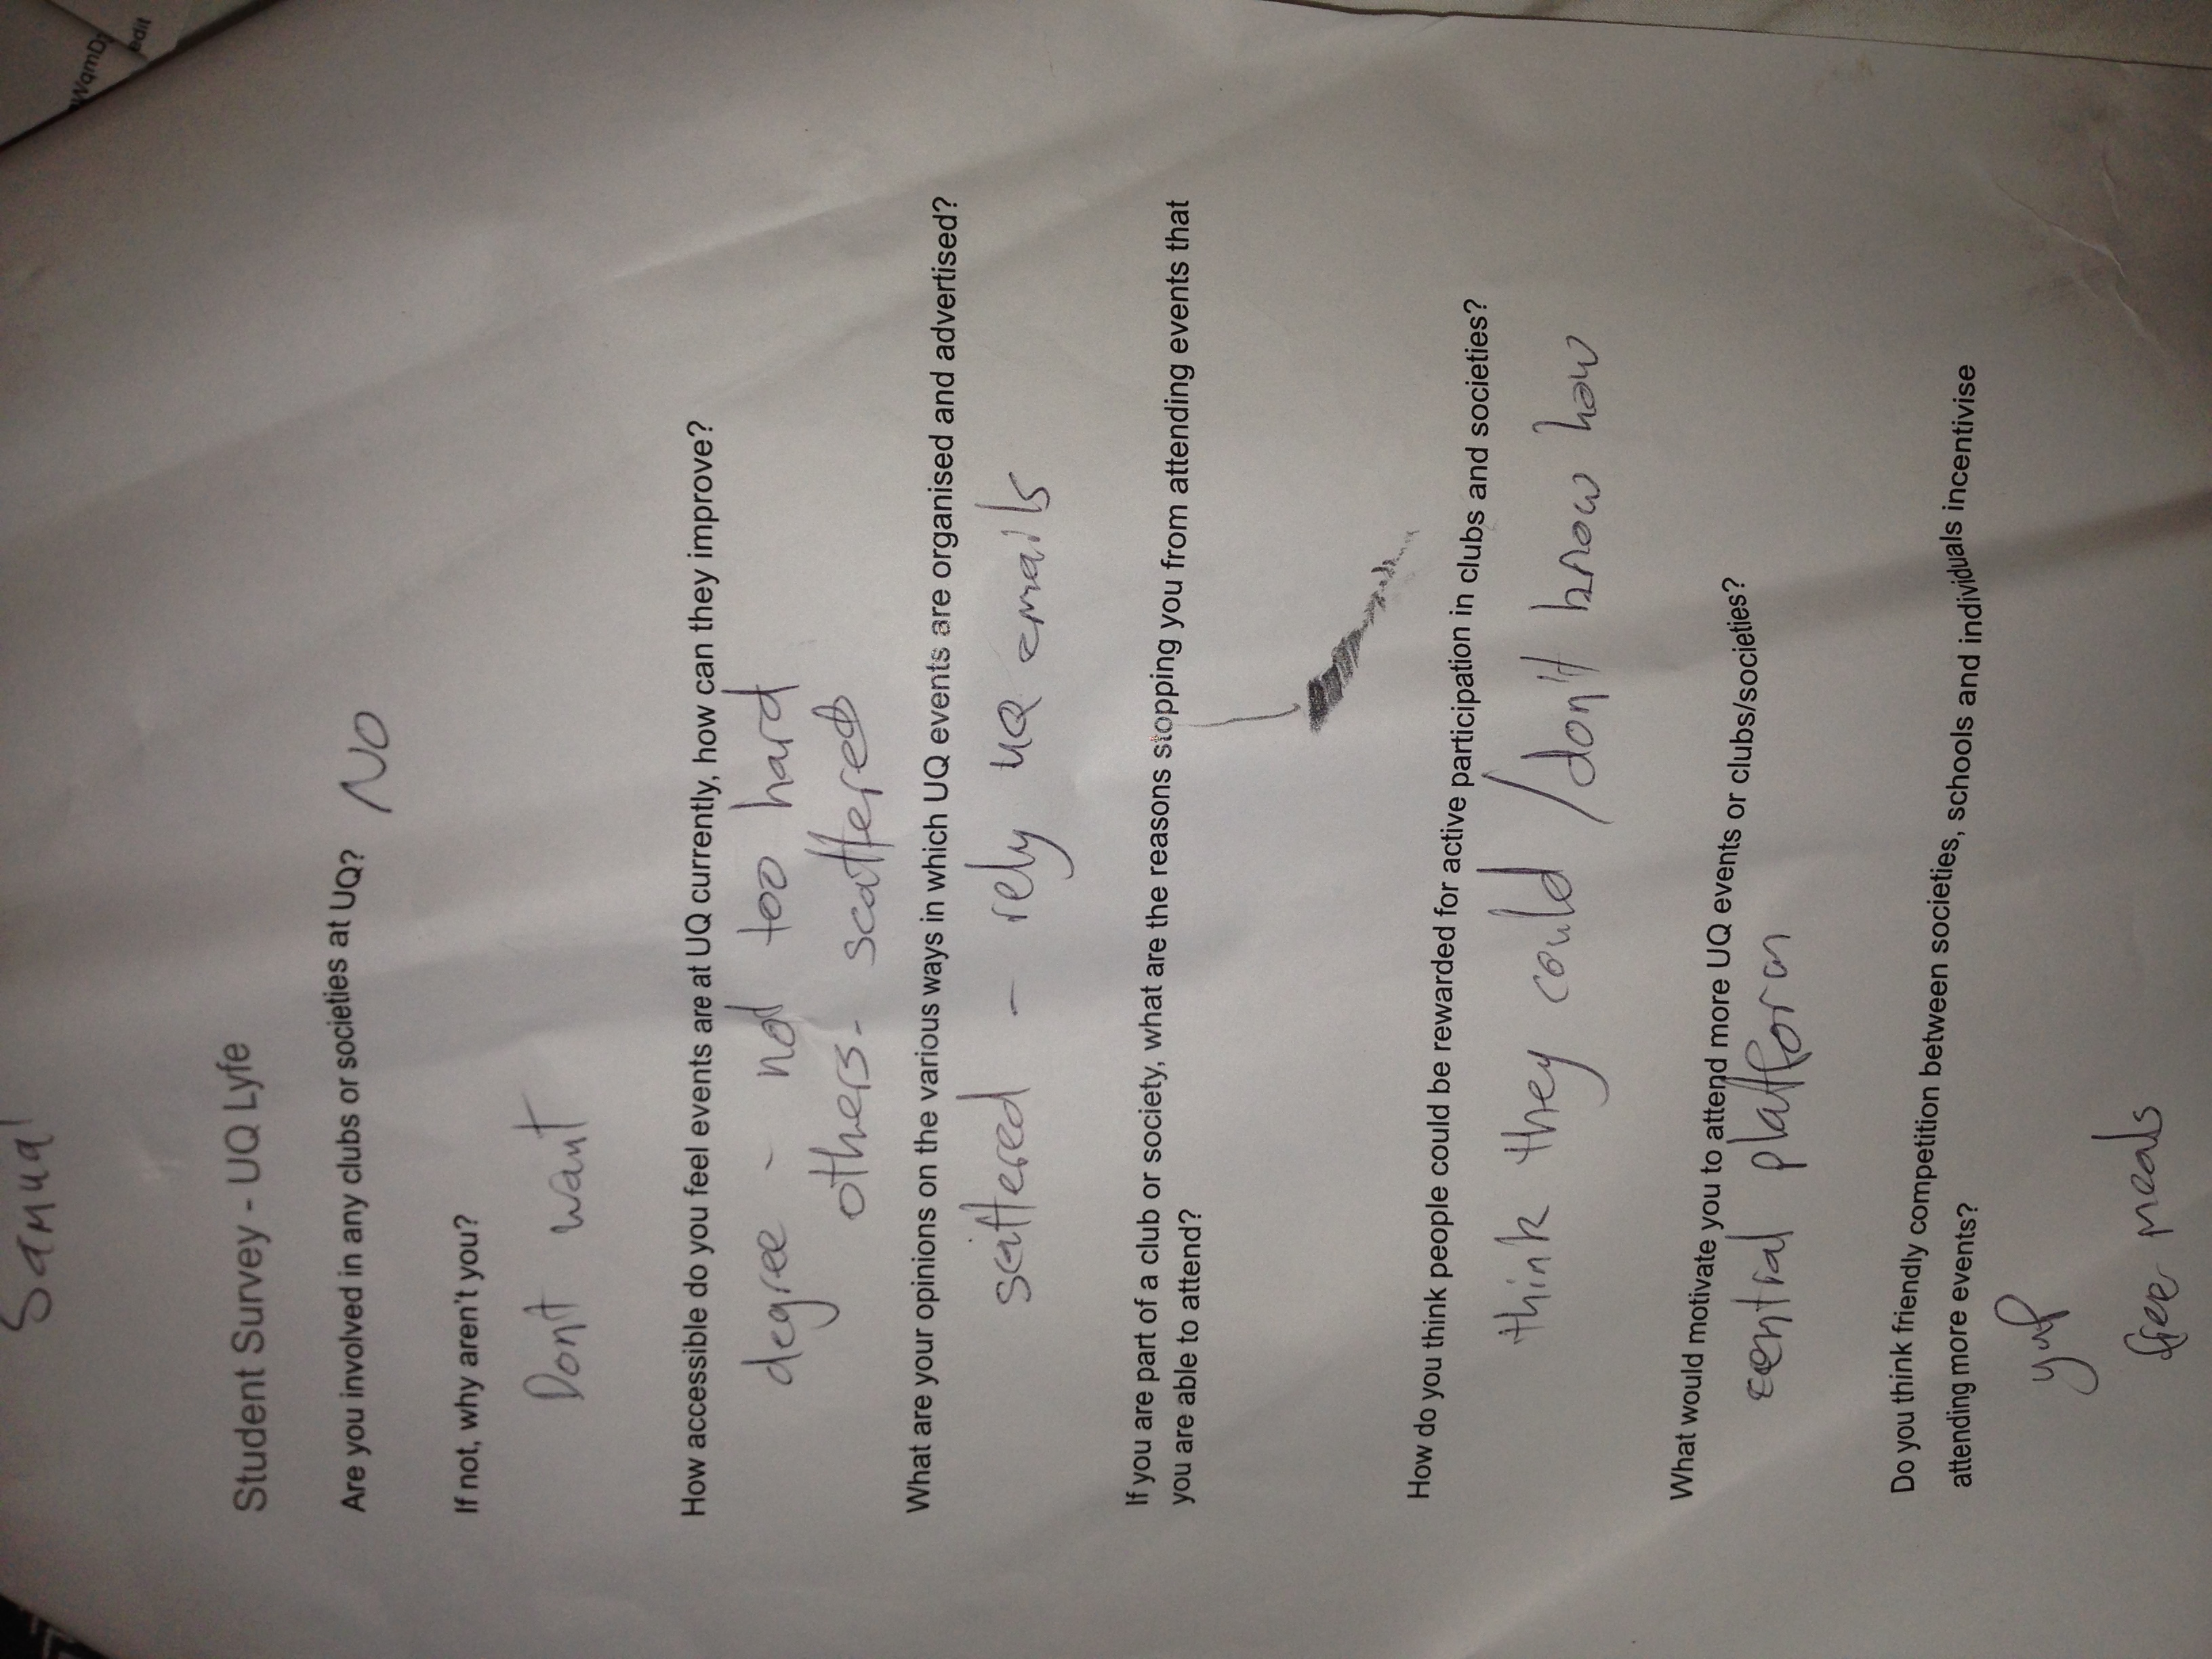 Samual
WqmD
edit
Student Survey - UQ Lyfe
Are you involved in any clubs or societies at UQ? NO
If not, why aren't you?
Dont want
How accessible do you feel events are at UQ currently, how can they improve?
degree - not too hard
others - scattered
What are your opinions on the various ways in which UQ events are organised and advertised?
scattered - rely UQ emails
If you are part of a club or society, what are the reasons stopping you from attending events that
you are able to attend?
How do you think people could be rewarded for active participation in clubs and societies?
think they could / don't know how
What would motivate you to attend more UQ events or clubs/societies?
central platform
Do you think friendly competition between societies, schools and individuals incentivise
attending more events?
yup
free meals